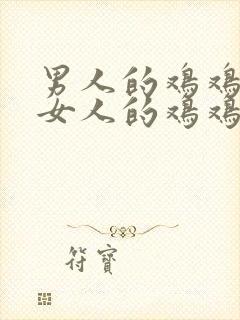 男人的鸡鸡
女人的鸡鸡
符寶